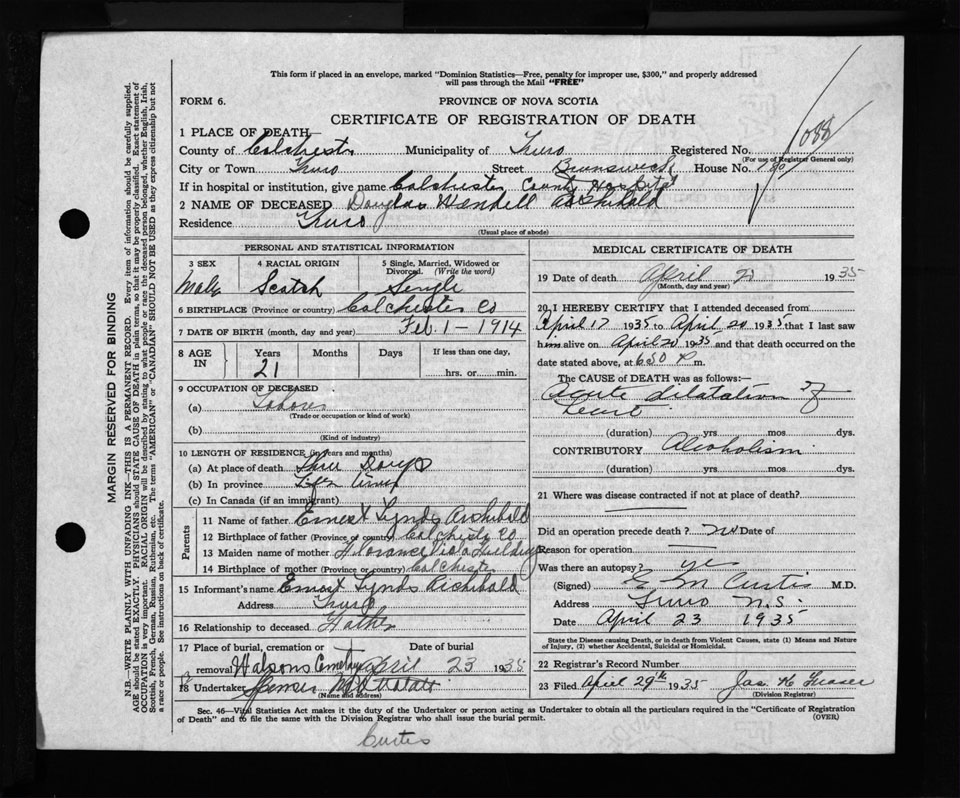 This form if placed in an envelope, marked "Dominion Statistics—Free, penalty for improper use, $300," and properly addressed
will pass through the Mail "FREE"
FORM 6.
PROVINCE OF NOVA SCOTIA
CERTIFICATE OF REGISTRATION OF DEATH
1 PLACE OF DEATH—
County of Colchester Municipality of Truro Registered No.
(For use of Registrar General only)
City or Town Truro Street Brunswick House No.
If in hospital or institution, give name Colchester County Hospital
2 NAME OF DECEASED Douglas Wendell Archibald
Residence Truro
(Usual place of abode)
PERSONAL AND STATISTICAL INFORMATION
3 SEX 4 RACIAL ORIGIN 5 Single, Married, Widowed or
Divorced. (Write the word)
Male Scotch Single
6 BIRTHPLACE (Province or country) Colchester Co
7 DATE OF BIRTH (month, day and year) Feb. 1 - 1914
8 AGE IN Years Months Days If less than one day,
21 hrs. or min.
9 OCCUPATION OF DECEASED
(a) Laborer
(Trade or occupation or kind of work)
(b)
(Kind of industry)
10 LENGTH OF RESIDENCE (in years and months)
(a) At place of death Three Days
(b) In province
(c) In Canada (if an immigrant)
Parents
11 Name of father Ernest Lynds Archibald
12 Birthplace of father (Province or country) Colchester Co
13 Maiden name of mother Florance Viola
14 Birthplace of mother (Province or country) Colchester
15 Informant's name Ernest Lynds Archibald
Address Truro
16 Relationship to deceased Father
17 Place of burial, cremation or Date of burial
removal Watsons Cemetery April 23 1935
18 Undertaker
(Name and address)
MEDICAL CERTIFICATE OF DEATH
19 Date of death April 1935
(Month, day and year)
20 I HEREBY CERTIFY that I attended deceased from
April 17 1935 to April 20 1935 that I last saw
him alive on April 20 1935 and that death occurred on the
date stated above, at 6 50 P m.
The CAUSE of DEATH was as follows:—
Acute dilatation of
heart
(duration) yrs mos. dys.
CONTRIBUTORY Alcoholism
(duration) yrs. mos. dys.
21 Where was disease contracted if not at place of death?
Did an operation precede death? no Date of
Reason for operation
Was there an autopsy? yes
(Signed) E M Curtis M.D.
Address Truro N.S.
Date April 23 1935
State the Disease causing Death, or in death from Violent Causes, state (1) Means and Nature
of Injury, (2) whether Accidental, Suicidal or Homicidal.
22 Registrar's Record Number
23 Filed April 29th 1935 Jas. H Fraser
(Division Registrar)
Sec. 46—Vital Statistics Act makes it the duty of the Undertaker or person acting as Undertaker to obtain all the particulars required in the "Certificate of Registration
of Death" and to file the same with the Division Registrar who shall issue the burial permit.
(OVER)
Curtis
MARGIN RESERVED FOR BINDING
N.B.—WRITE PLAINLY WITH UNFADING INK—THIS IS A PERMANENT RECORD. Every item of information should be carefully supplied.
AGE should be stated EXACTLY. PHYSICIANS should STATE CAUSE OF DEATH in plain terms, so that it may be properly classified. Exact statement of
OCCUPATION is very important. RACIAL ORIGIN will be described by stating to what people or race the deceased person belonged, whether English, Irish,
Scottish, French, German, Russian, Ruthenian, etc. The terms "AMERICAN" or "CANADIAN" SHOULD NOT BE USED as they express citizenship but not
a race or people. See instructions on back of certificate.